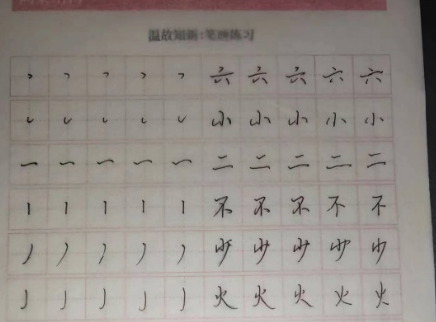 温故知新:笔画练习
丶 丶 丶 丶 丶 六 六 六 六 六
小 小 小 小 小
一 一 一 一 一 二 二 二 二 二
丨 丨 丨 丨 丨 不 不 不 不 不
丿 丿 丿 丿 丿 少 少 少 少 少
丿 丿 丿 丿 丿 火 火 火 火 火